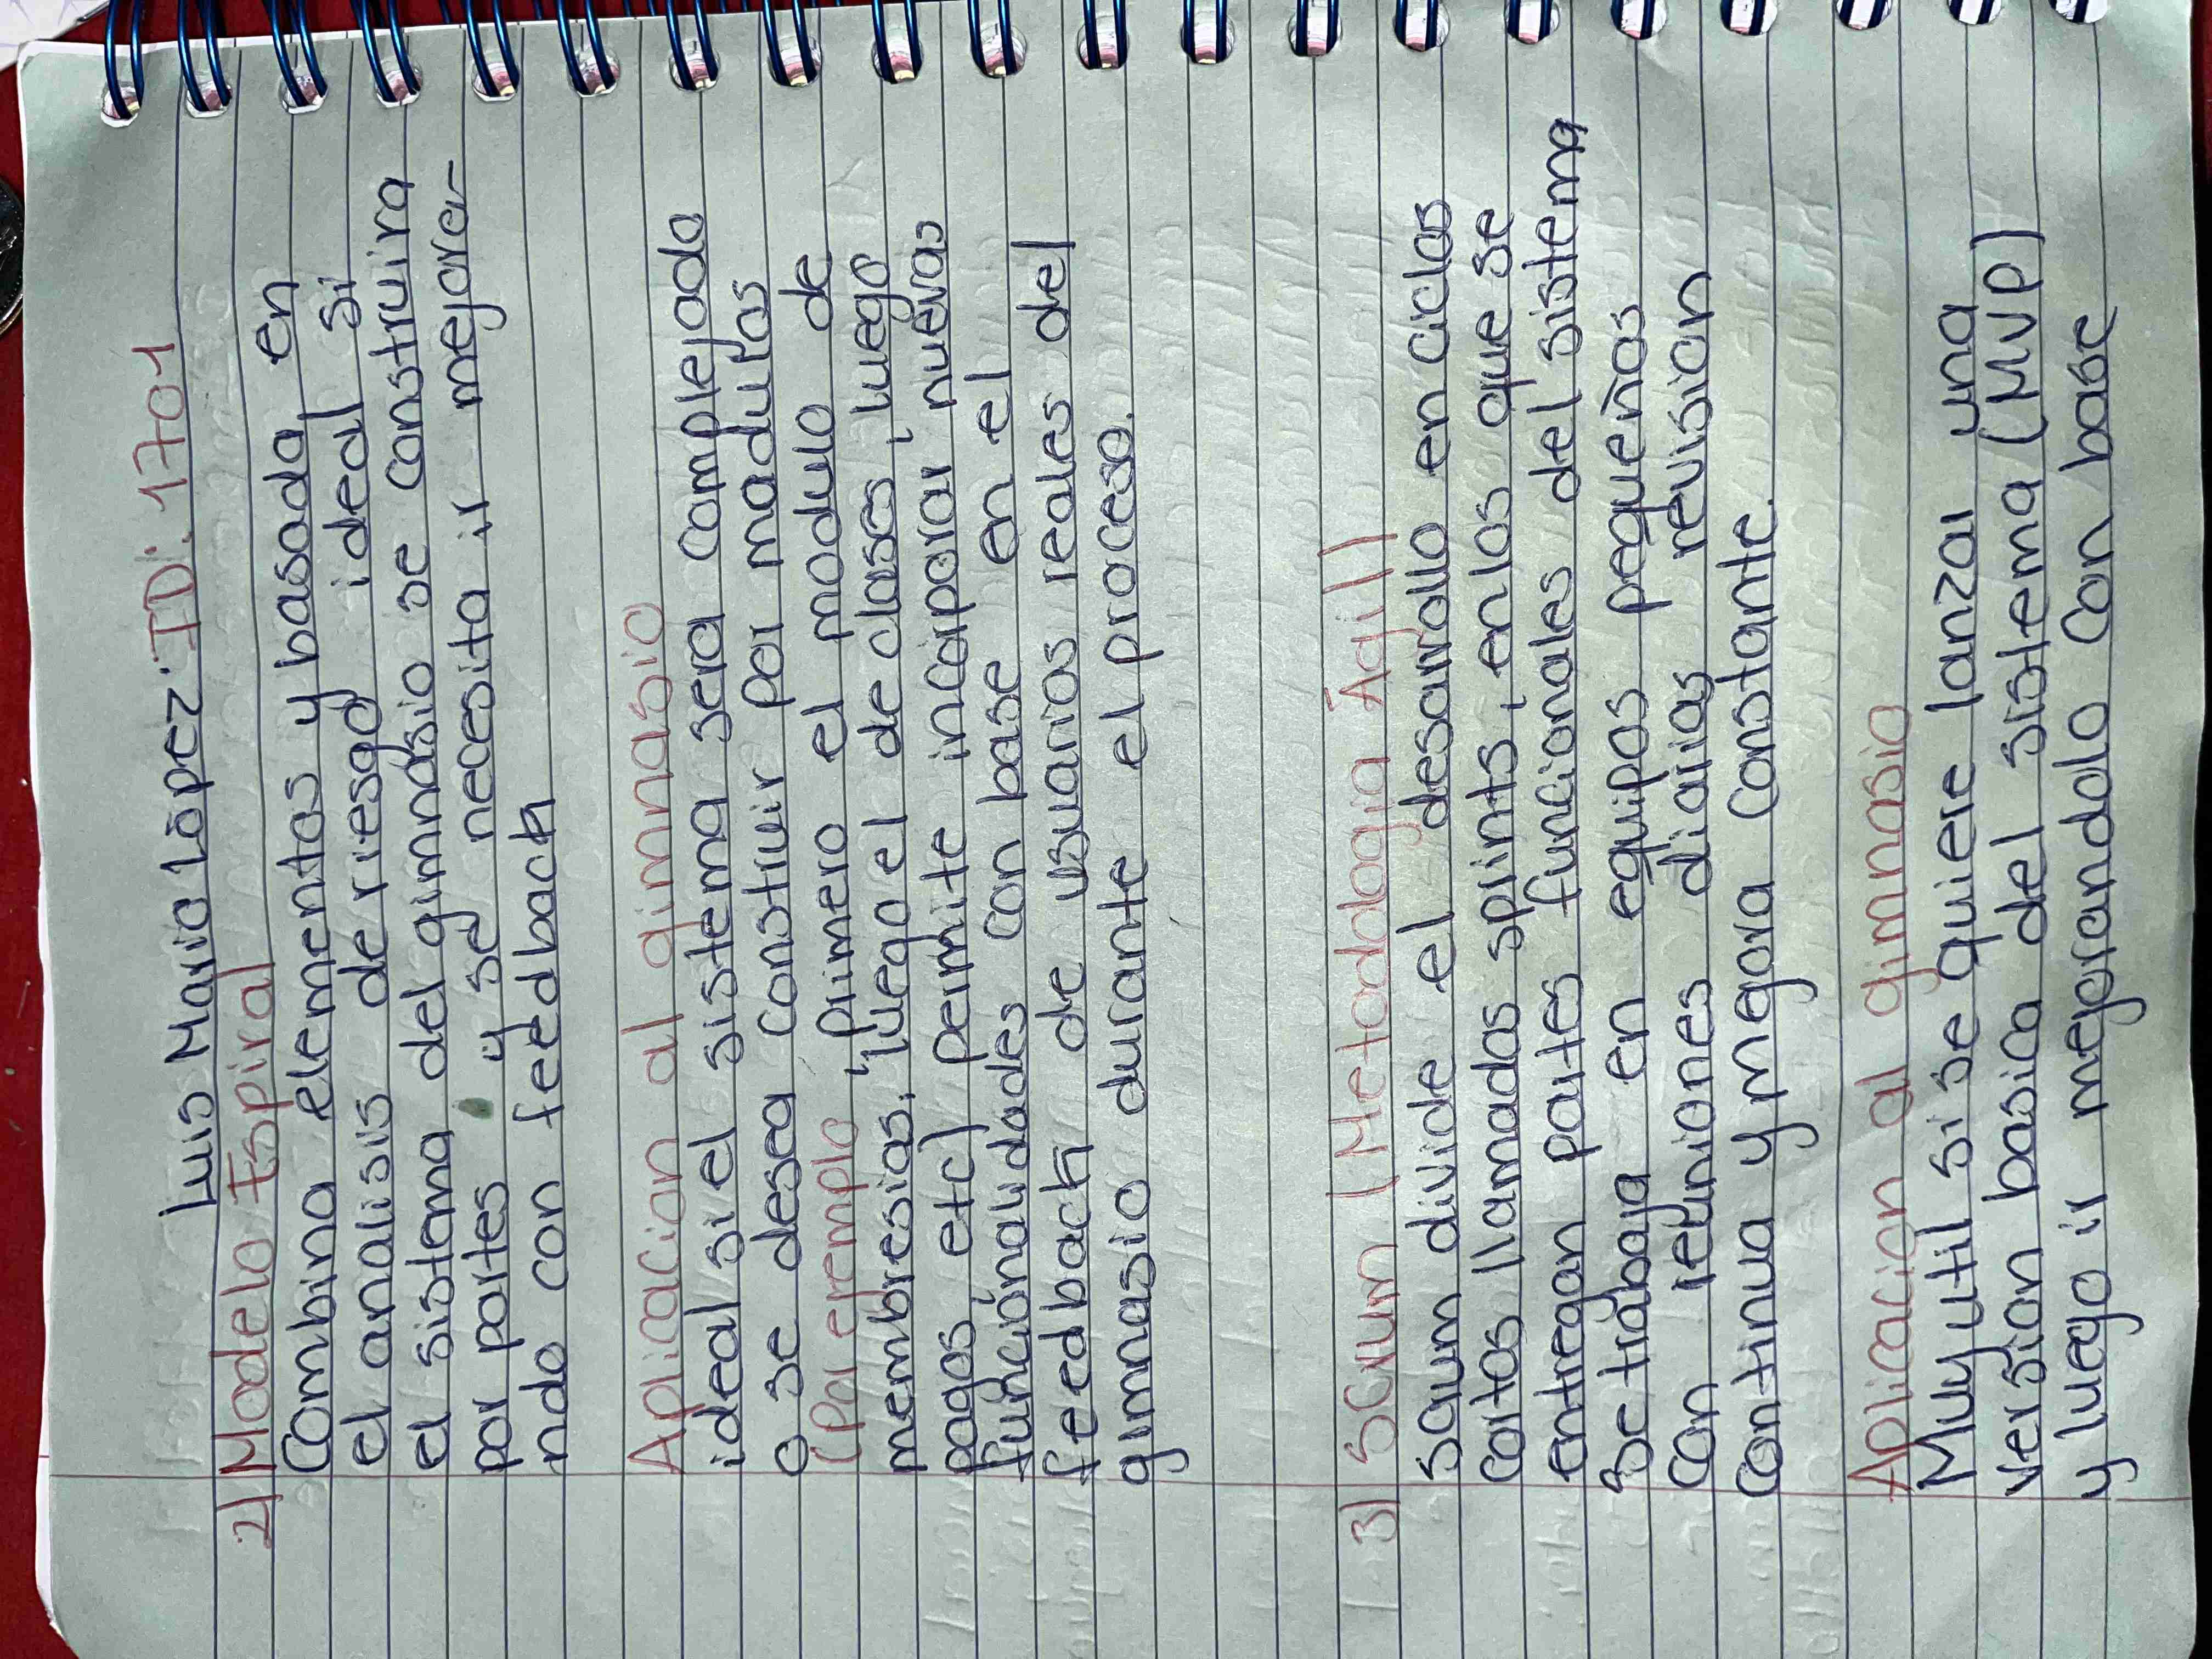 Luis Mario López ID: 1701
2) Modelo Espiral
Combina elementos y basada en
el analisis de riesgo ideal si
el sistema del gimnasio se construira
por partes y se necesita ir mejora-
ndo con feedback
Aplicacion al gimnasio
ideal si el sistema sera complejado
o se desea construir por modulos
(por ejemplo, primero el modulo de
membresias, luego el de clases, luego
pagos, etc) permite incorporar nuevas
funcionalidades con base en el
feedback de usuarios reales del
gimnasio durante el proceso.
3) Scrum (Metodologia Ágil)
Scrum divide el desarrollo en ciclos
cortos llamados sprints, en los que se
entregan partes funcionales del sistema
Se trabaja en equipos pequeños
con reuniones diarias revision
continua y megora constante.
Aplicacion al gimnasio
Muy util si se quiere lanzar una
version basica del sistema (MVP)
y luego ir mejorandolo con base